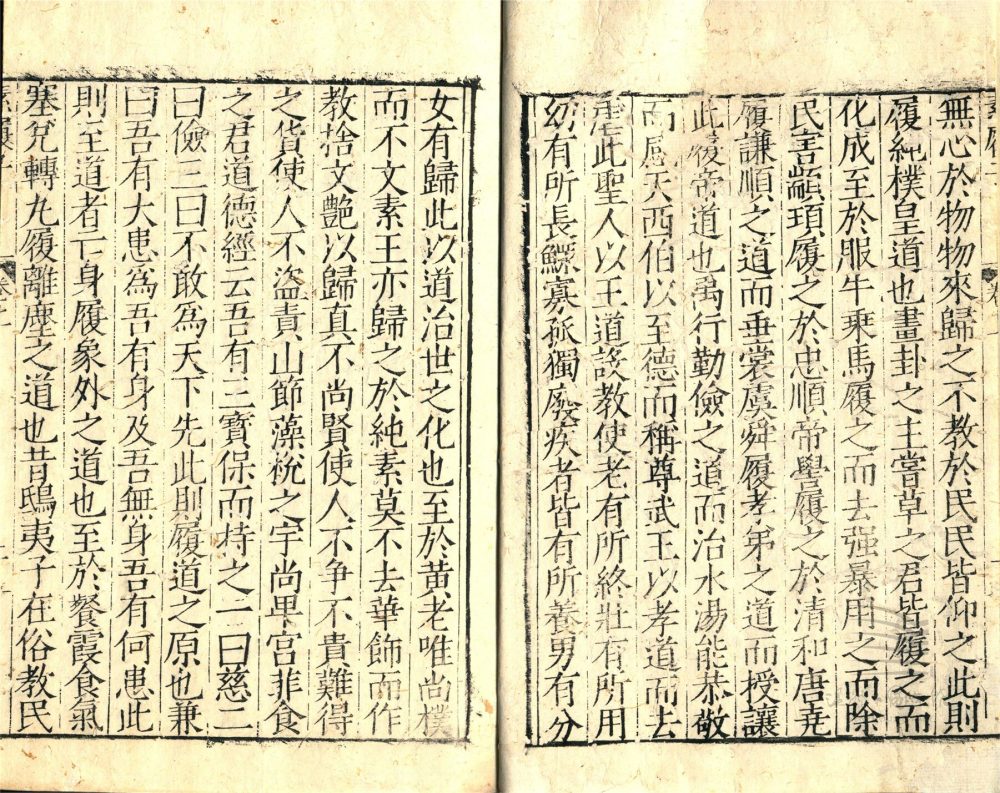 無心於物物來歸之不教於民民皆仰之此則
履純樸皇道也畫卦之主嘗草之君皆履之而
化成至於服牛乘馬履之而去强暴用之而除
民害顓頊履之於忠順帝嚳履之於清和唐堯
履謙順之道而垂裳虞舜履孝弟之道而授讓
此履帝道也禹行勤儉之道而治水湯能恭敬
而感天西伯以至德而稱尊武王以孝道而去
虐此聖人以王道設教使老有所終壯有所用
幼有所長鰥寡孤獨廢疾者皆有所養男有分
女有歸此以道治世之化也至於黃老唯尚樸
而不文素王亦歸之於純素莫不去華飾而作
教捨文艶以歸真不尚賢使人不争不貴難得
之貨使人不盜責山節藻梲之宇尚卑宫菲食
之君道德經云吾有三寳保而持之一曰慈二
曰儉三曰不敢為天下先此則履道之原也兼
曰吾有大患為吾有身及吾無身吾有何患此
則至道者亡身履象外之道也至於餐霞食氣
塞兊轉九履離塵之道也昔鴟夷子在俗教民